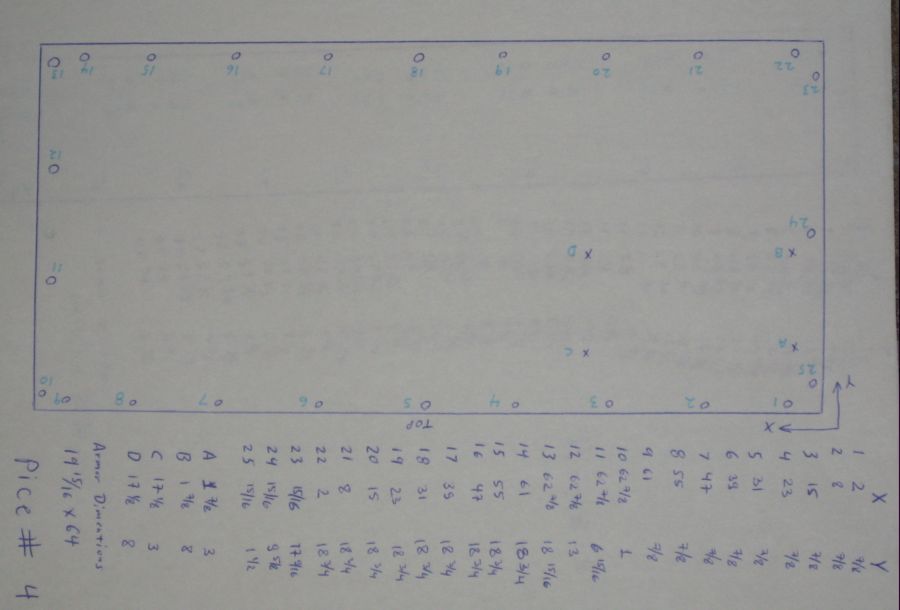 X Y
1 2 7/8
2 8 7/8
3 15 7/8
4 23 7/8
5 31 7/8
6 39 7/8
7 47 7/8
8 55 7/8
9 61 7/8
10 62 7/8 1
11 62 7/8 6 15/16
12 62 7/8 13
13 62 7/8 18 15/16
14 61 18 3/4
15 55 18 3/4
16 47 18 3/4
17 39 18 3/4
18 31 18 3/4
19 23 18 3/4
20 15 18 3/4
21 8 18 3/4
22 2 18 3/4
23 15/16
24 15/16 9 5/8
25 15/16 1 1/2
A 1 7/8 3
B 1 7/8 8
C 17 1/2 3
D 17 1/2 8
Armor Dimentions
19 15/16 x 64
Pice # 4
X
Y
TOP
1
2
3
4
5
6
7
8
9
10
11
12
13
14
15
16
17
18
19
20
21
22
23
24
25
A
B
C
D